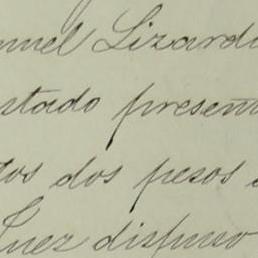 nuel Lizardi
stado present
tos dos pesos
Juez dispuso